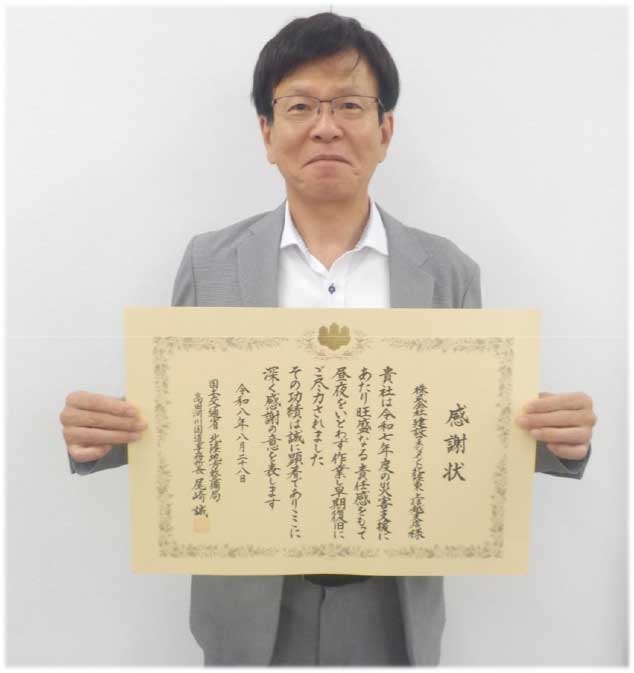 感謝状
株式会社建設 北陸東 上信越支店様
貴社は令和七年度の災害支援に
あたり旺盛なる責任感をもって
昼夜をいとわず作業し早期復旧に
ご尽力されました
その功績は誠に顕著でありここに
深く感謝の意を表します
令和八年八月二十八日
国土交通省 北陸地方整備局
高田河川国道事務所長 尾崎 誠